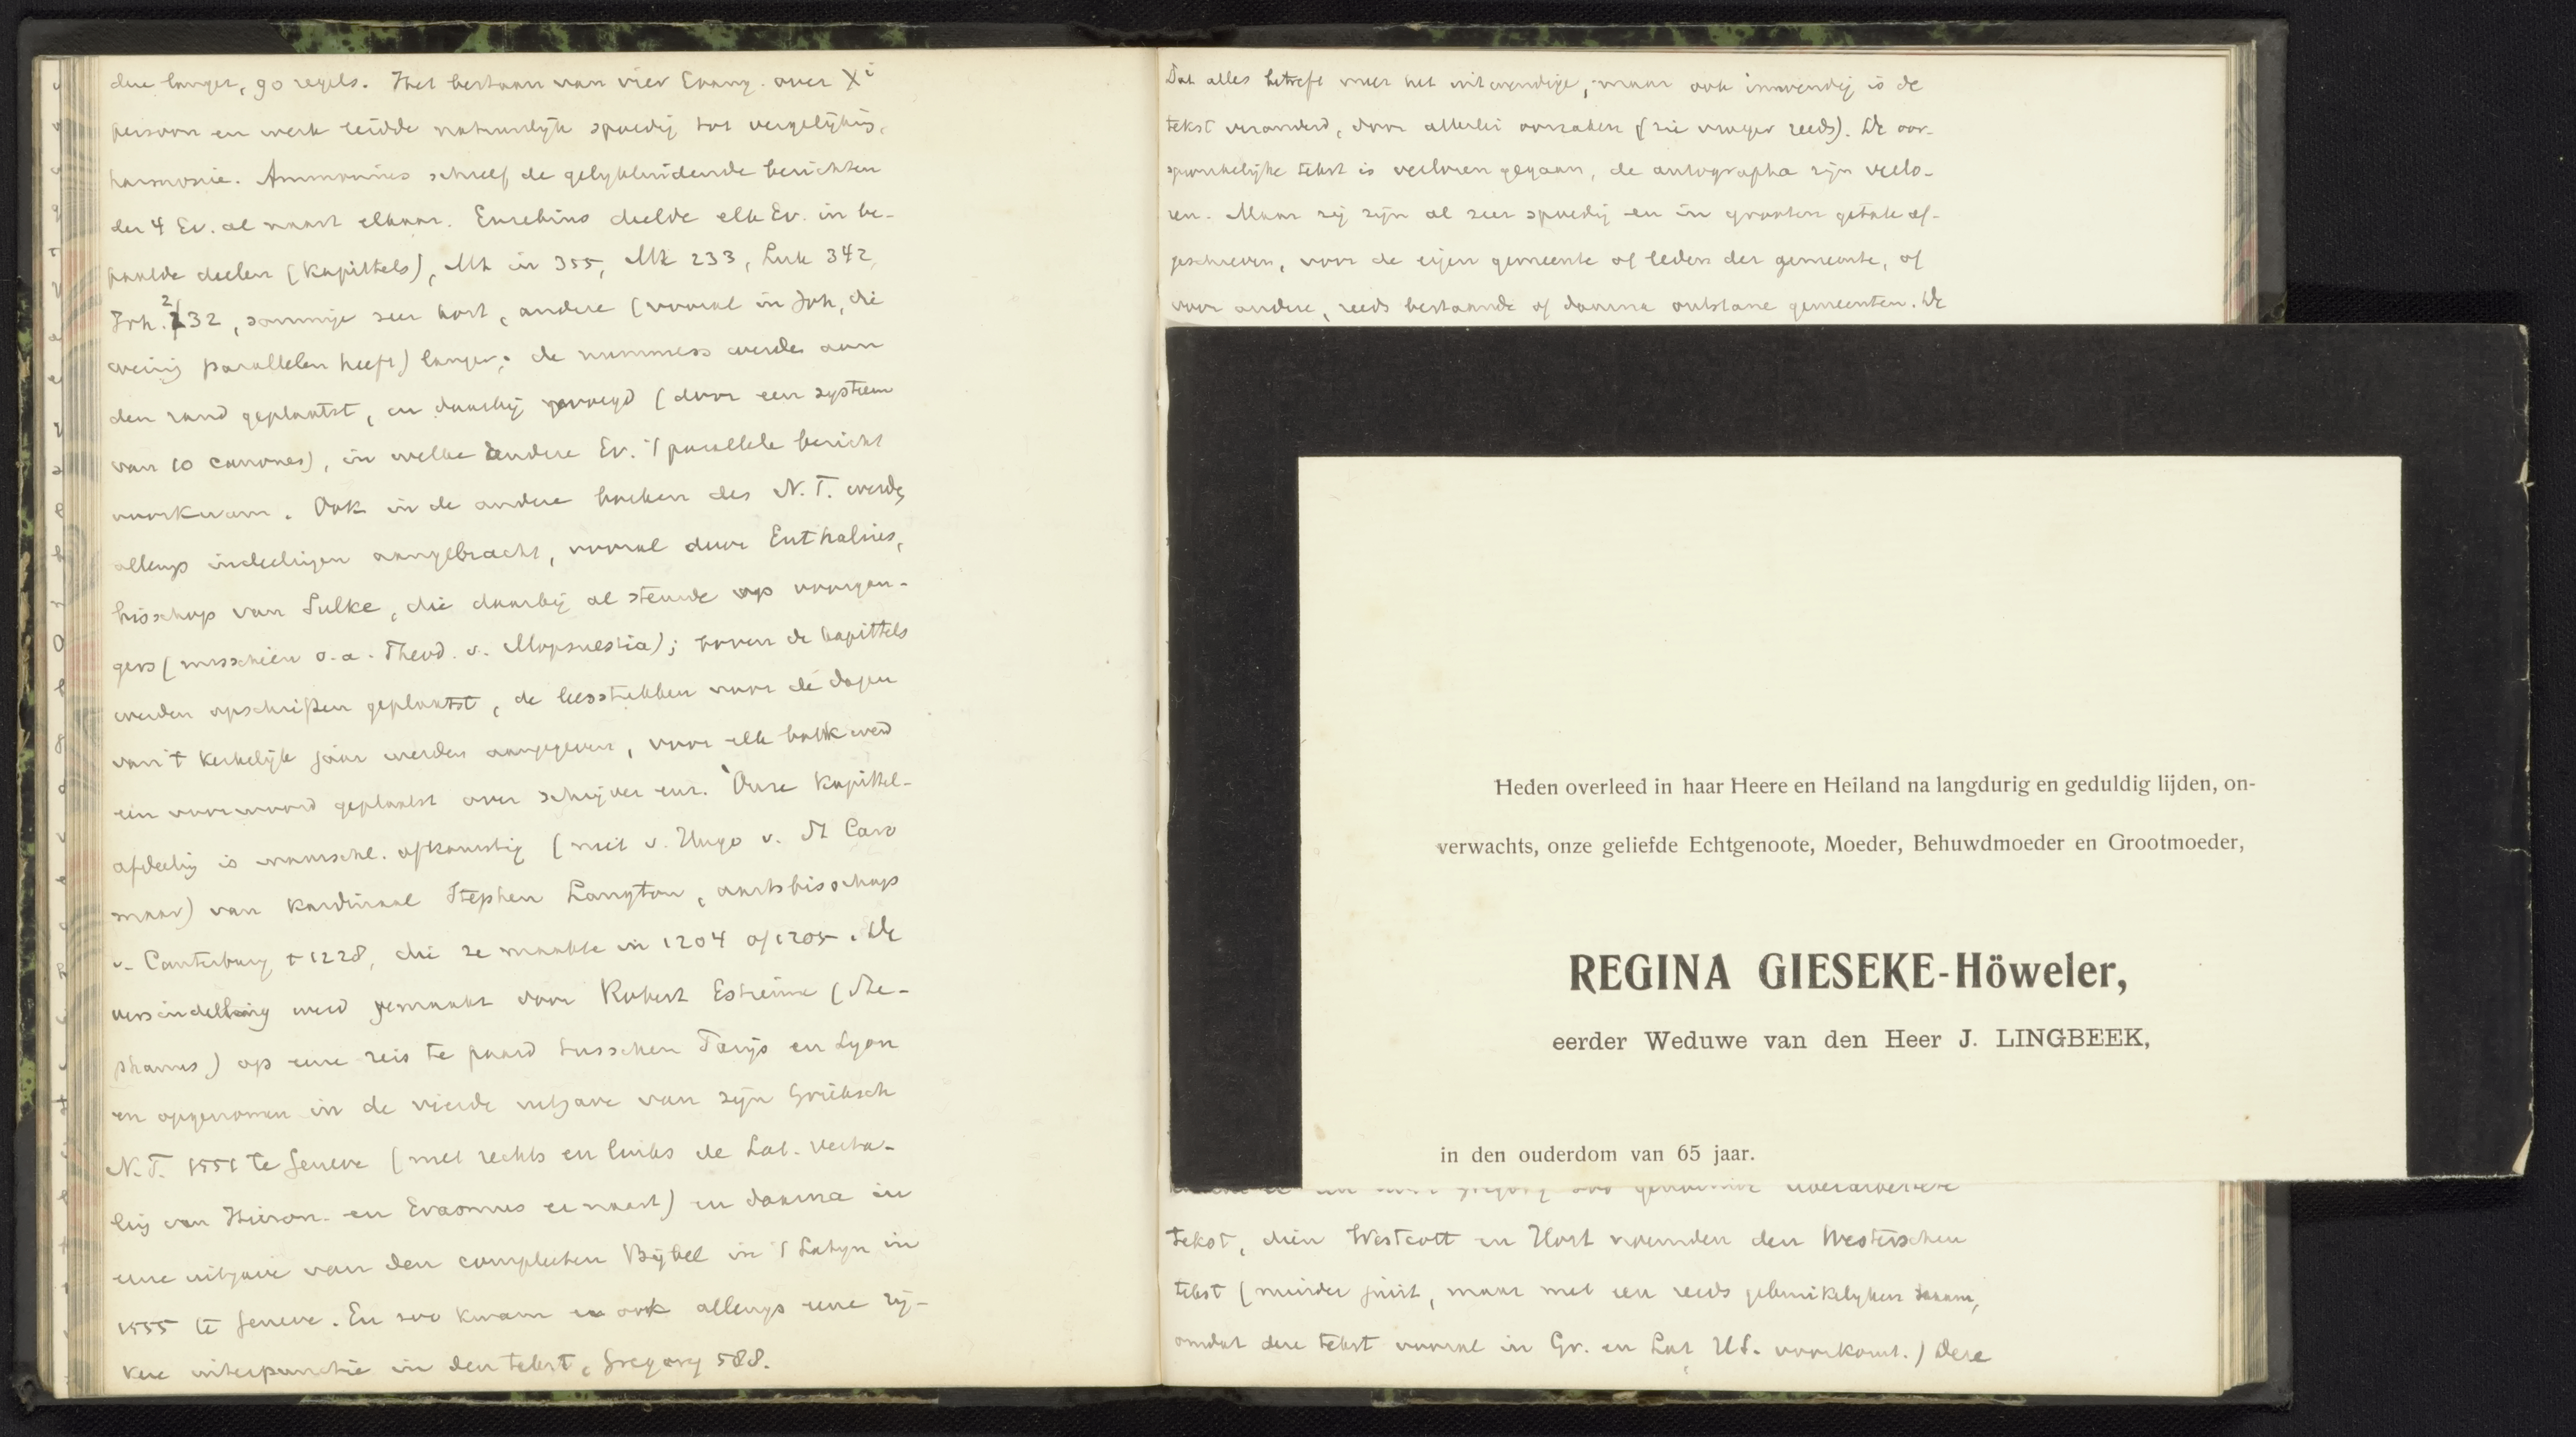 dere langer, 90 regels. Het bestaan van vier Evang. over Xi
persoon en werk leidde natuurlijk spoedig tot vergelijking,
harmonie. Ammonius schreef de gelijkluidende berichten
der 4 Ev. al naast elkaar. Eusebius deelde elk Ev. in be-
paalde deelen (kapittels), Mt in 355, Mk 233, Luk 342,
Joh. 232, sommige zeer kort, andere (vooral in Joh, die
weinig parallelen heeft) langer; de nummers werden aan
den rand geplaatst, en daarbij gevoegd (door een systeem
van 10 canones), in welke andere Ev. 't parallele bericht
voorkwam. Ook in de andere boeken des N. T. werden
allengs indeelingen aangebracht, vooral door Euthalius,
bisschop van Sulke, die daarbij al steunde op voorgan-
gers (misschien o.a. Theod. v. Mopsuestia); boven de kapittels
werden opschriften geplaatst, de leesstukken voor de dagen
van 't kerkelijk jaar werden aangegeven, voor elk boek werd
een voorwoord geplaatst over schrijver enz. Onze kapittel-
afdeeling is waarschl. afkomstig (niet v. Hugo v. St Caro
maar) van kardinaal Stephen Langton, aartsbisschop
v. Canterbury † 1228, die ze maakte in 1204 of 1205. De
versindeeling werd gemaakt door Robert Estienne (Ste-
phanus) op eene reis te paard tusschen Parijs en Lyon
en opgenomen in de vierde uitgave van zijn Grieksch
N.T. 1551 te Geneve (met rechts en links de Lat. verta-
ling van Hieron. en Erasmus er naast) en daarna in
eene uitgave van den compleeten Bijbel in 't Latijn in
1555 te Geneve. En zoo kwam er ook allengs eene rij-
kere interpunctie in den tekst, Gregory 588.
Dat alles betreft meer het uitwendige, maar ook inwendig is de
tekst veranderd, door allerlei oorzaken (zie vroeger reeds). De oor-
spronkelijke tekst is verloren gegaan, de autographa zijn verlo-
ren. Maar zij zijn al zeer spoedig en in grooten getale af-
geschreven, voor de eigen gemeente of leden der gemeente, of
voor andere, reeds bestaande of daarna ontstane gemeenten. De
Heden overleed in haar Heere en Heiland na langdurig en geduldig lijden, on-
verwachts, onze geliefde Echtgenoote, Moeder, Behuwdmoeder en Grootmoeder,
REGINA GIESEKE-Höweler,
eerder Weduwe van den Heer J. LINGBEEK,
in den ouderdom van 65 jaar.
tekst, dien Westcott en Hort noemden den Westerschen
tekst (minder juist, maar met een reeds gebruikelijken naam,
omdat deze tekst vooral in Gr. en Lat. Us. voorkomt.) Deze